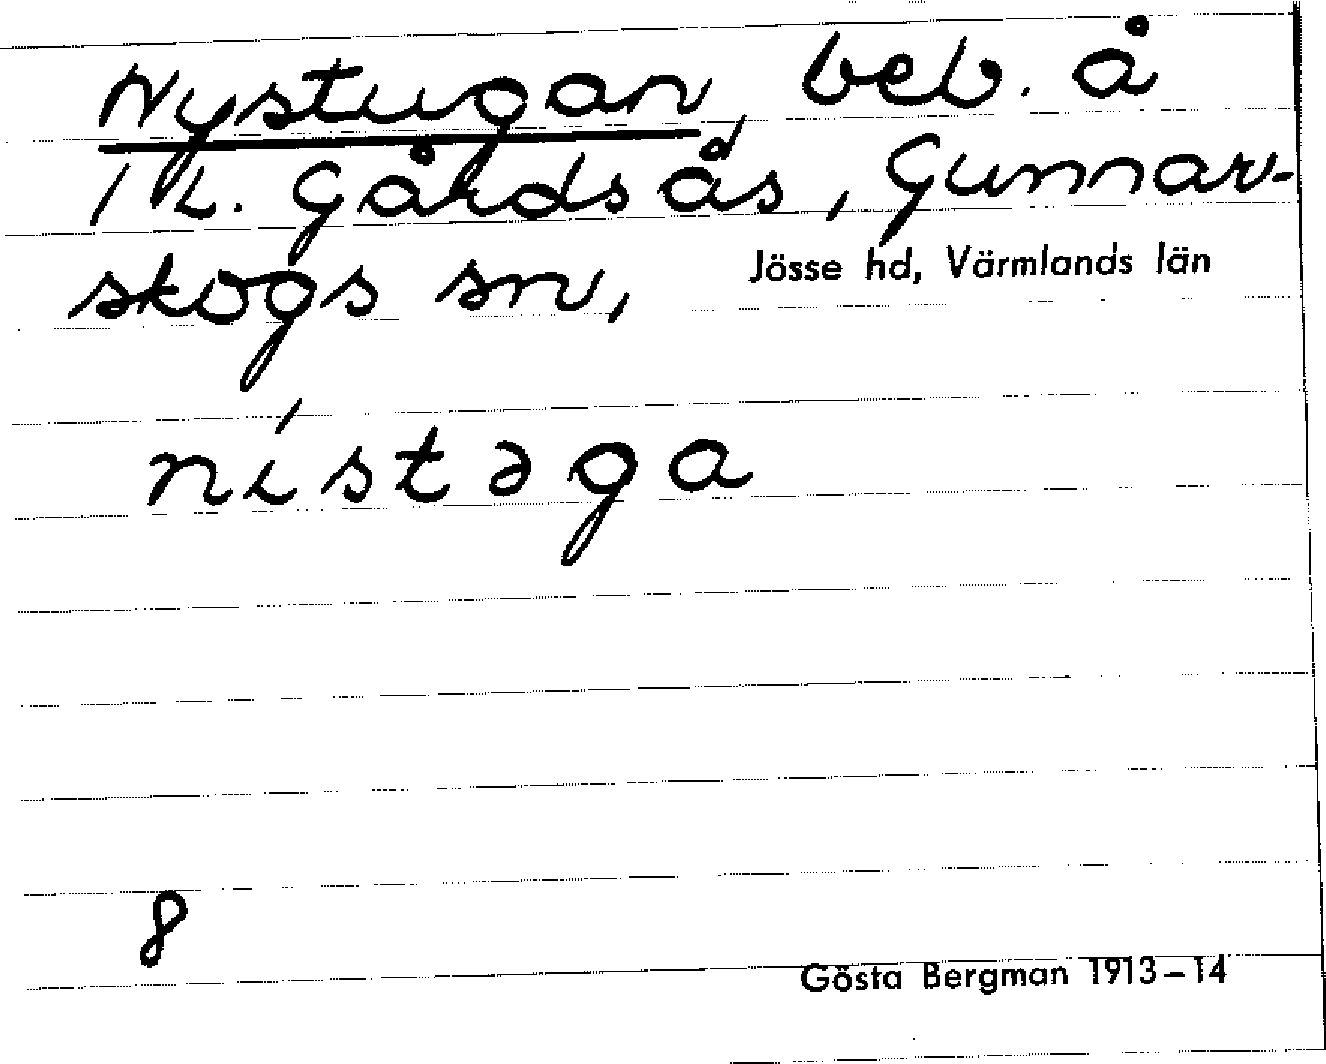 Nystugan beb. å
1 N. Gårdsås, Gunnar-
skogs sn, Jössе hd, Värmlands län
nístəga
8
Gösta Bergman 1913–14